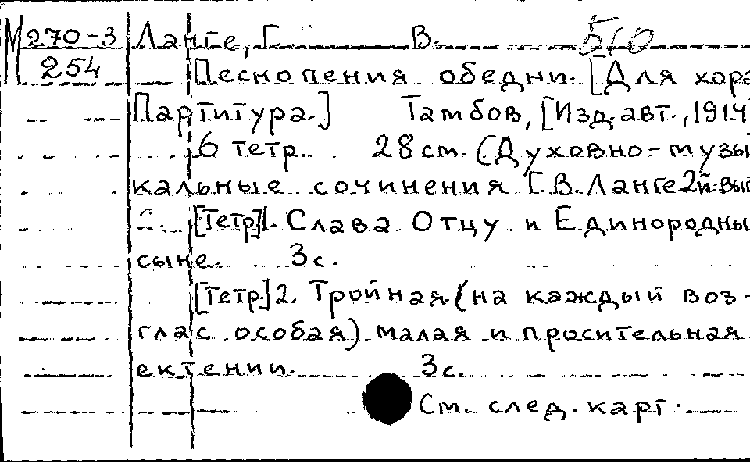 М 270-3 Ланге, Г. В. БІО
254 Песнопения обедни. [Для хора
Партитура.] Тамбов, [Изд. авт., 1914
6 тетр. 28 см. (Духовно-музы
кальные сочинения Г. В. Ланге 2й вып
[Тетр.] 1. Слава Отцу и Единородны
сыне. 3 с.
[Тетр.] 2. Тройная (на каждый воз-
глас особая) малая и просительная
ектении. 3 с.
См. след. карт.